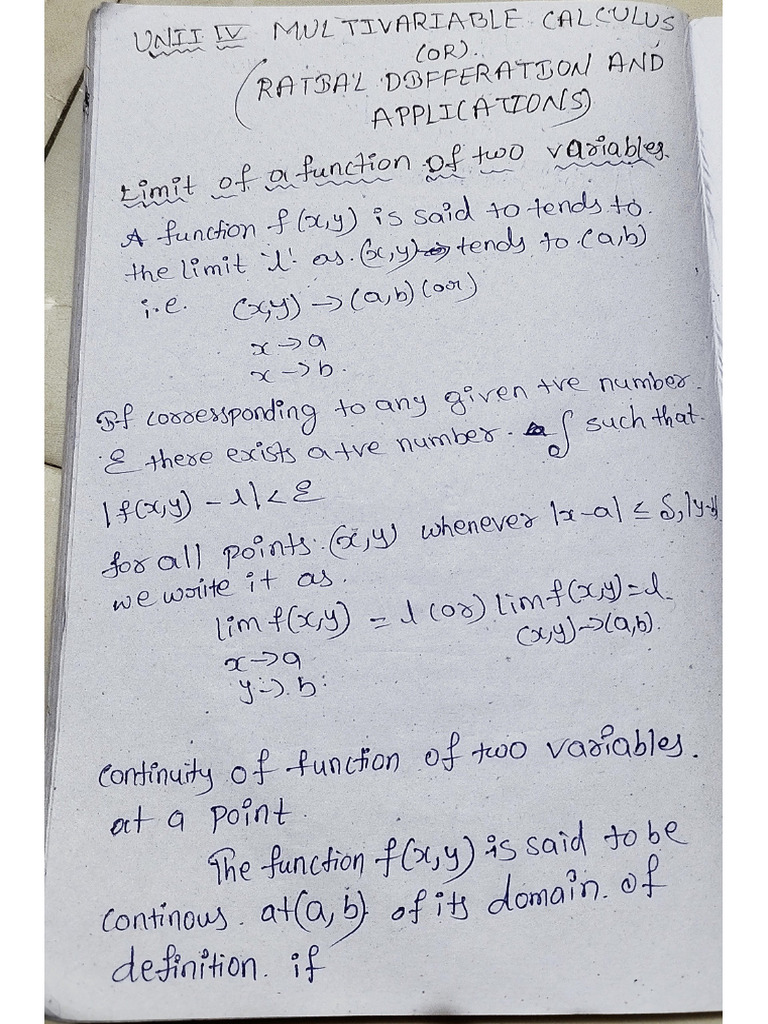 UNIT IV MULTIVARIABLE CALCULUS
(OR).
(RATIAL DIFFERATION AND
APPLICATIONS)
Limit of a function of two variables.
A function f(x,y) is said to tends to.
the limit 'l' as (x,y) tends to (a,b)
i.e. (x,y) → (a,b) (or)
x → a
x → b.
If corressponding to any given +ve number.
ε there exists a +ve number. δ such that.
|f(x,y) - l| < ε
for all points (x,y) whenever |x-a| ≤ δ, |y-b|
we write it as.
lim f(x,y) = l (or) lim f(x,y) = l.
x → a (x,y) → (a,b).
y → b.
Continuity of function of two variables.
at a point.
The function f(x,y) is said to be
continous. at (a,b) of its domain. of
definition. if